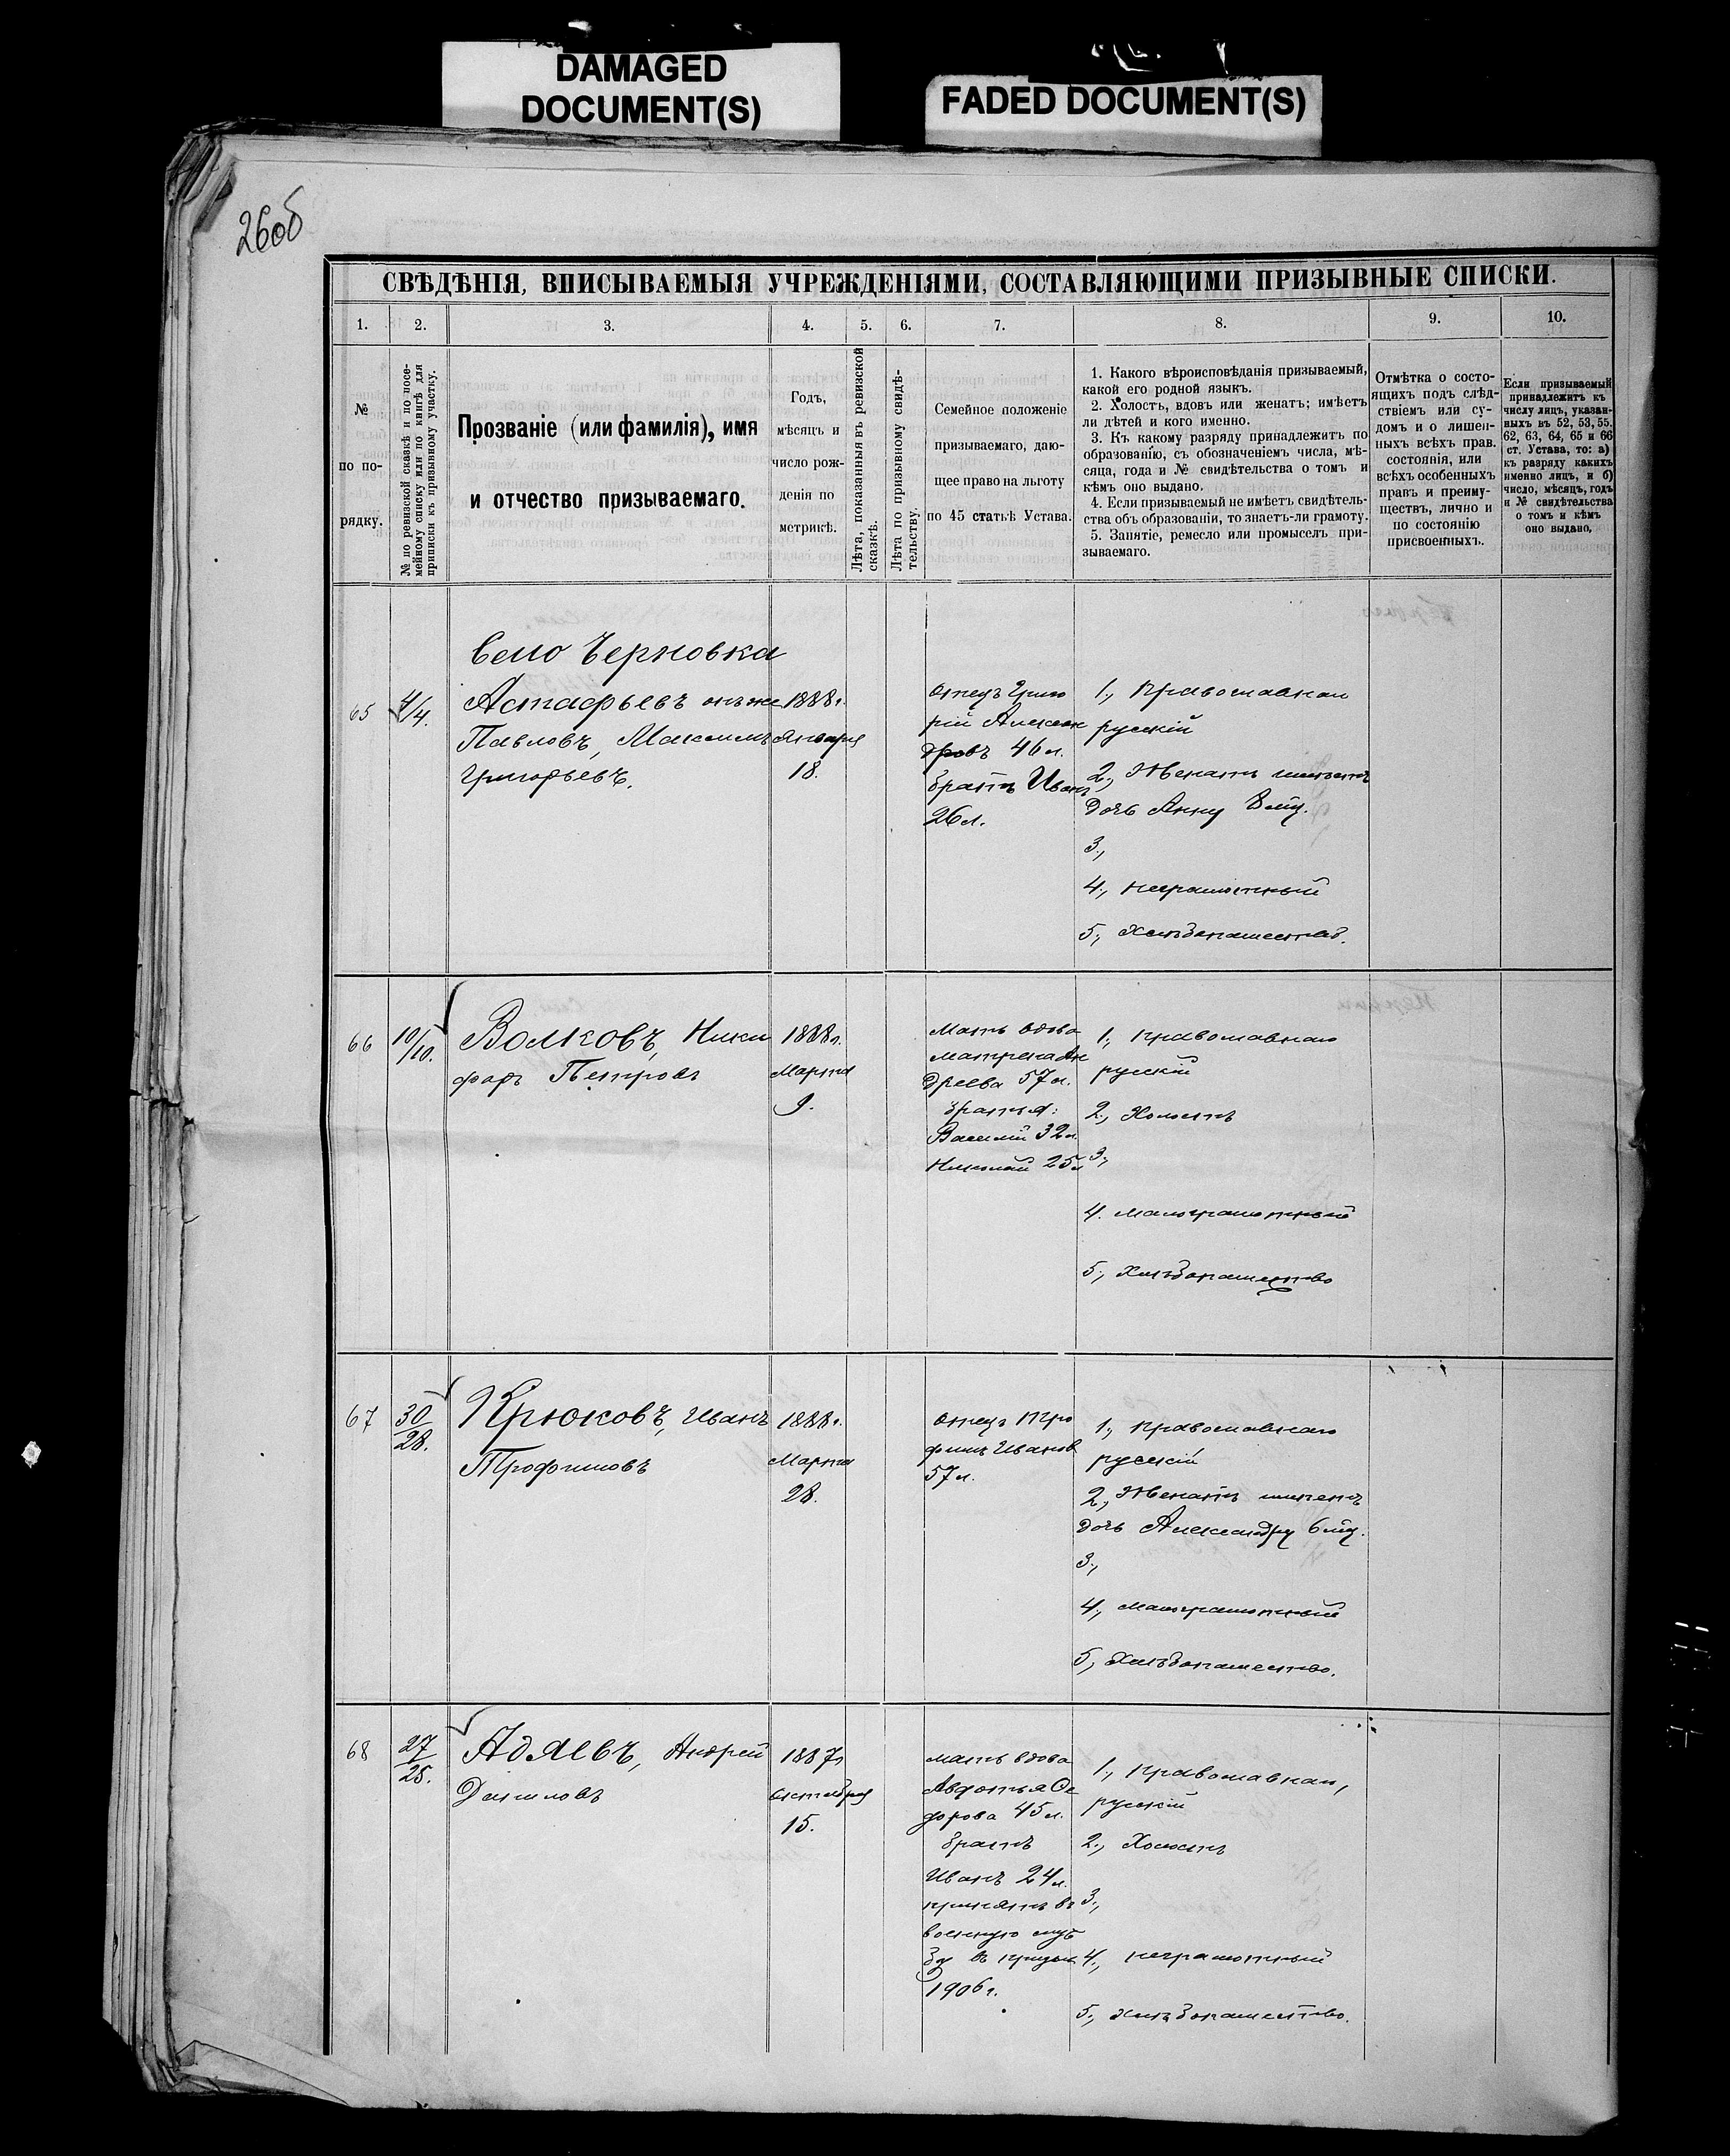 DAMAGED
DOCUMENT(S)
FADED DOCUMENT(S)
260б
СВѢДѢНІЯ, ВПИСЫВАЕМЫЯ УЧРЕЖДЕНІЯМИ, СОСТАВЛЯЮЩИМИ ПРИЗЫВНЫЕ СПИСКИ.
1. 2. 3. 4. 5. 6. 7. 8. 9. 10.
№
по по-
рядку.
№ по ревизской сказкѣ и по посе-
мейному списку или по книгѣ для
приписки къ призывному участку.
Прозваніе (или фамилія), имя
и отчество призываемаго.
Годъ,
мѣсяцъ и
число рож-
денія по
метрикѣ.
Лѣта, показанныя въ ревизской
сказкѣ.
Лѣта по призывному свидѣ-
тельству.
Семейное положеніе
призываемаго, даю-
щее право на льготу
по 45 статьѣ Устава.
1. Какого вѣроисповѣданія призываемый,
какой его родной языкъ.
2. Холостъ, вдовъ или женатъ; имѣетъ
ли дѣтей и кого именно.
3. Къ какому разряду принадлежитъ по
образованію, съ обозначеніемъ числа, мѣ-
сяца, года и № свидѣтельства о томъ и
кѣмъ оно выдано.
4. Если призываемый не имѣетъ свидѣтель-
ства объ образованіи, то знаетъ-ли грамоту.
5. Занятіе, ремесло или промыселъ при-
зываемаго.
Отмѣтка о состо-
ящихъ подъ слѣд-
ствіемъ или су-
домъ и о лишен-
ныхъ всѣхъ прав.
состоянія, или
всѣхъ особенныхъ
правъ и преиму-
ществъ, лично и
по состоянію
присвоенныхъ.
Если призываемый
принадлежитъ къ
числу лицъ, указан-
ныхъ въ 52, 53, 55,
62, 63, 64, 65 и 66
ст. Устава, то: а)
къ разряду какихъ
именно лицъ, и б)
число, мѣсяцъ, годъ
и № свидѣтельства
о томъ и кѣмъ
оно выдано,
Село Черновка
65
4/4.
Астафьевъ онъ же
Павловъ, Максимъ
Григорьевъ.
1888г.
Января
18.
Отецъ Григо
рій Алексан
дровъ 46 л.
братъ Иванъ
26 л.
1., Православная
русскій
2., Женатъ имѣетъ
дочь Анну 8 мѣц.
3.,
4., неграмотный
5., Хлѣбопашество.
66
10/10.
Волковъ, Ники
форъ Петровъ
1888г.
Марта
9.
Мать вдова
Матрена Ан
дреева 57 л.
братья:
Василій 32 л
Николай 25 л
1., Православная
русскій
2., Холостъ
3.,
4. Малограмотный
5., Хлѣбопашество
67
30/28.
Крюковъ, Иванъ
Трофимовъ
1888г.
Марта
28.
Отецъ Тро
фимъ Иванов
57 л.
1., Православная
русскій
2., Женатъ имѣетъ
дочь Александру 6 мѣц.
3.,
4., Малограмотный
5., Хлѣбопашество.
68
27/25.
Адяевъ, Андрей
Даниловъ
1887г
октября
15.
мать вдова
Авдотья Фе
дорова 45 л.
братъ
Иванъ 24 л.
принятъ въ
военную служ
бу въ призыв
1906 г.
1., Православная,
русскій
2., Холостъ
3.,
4., неграмотный
5., Хлѣбопашество.